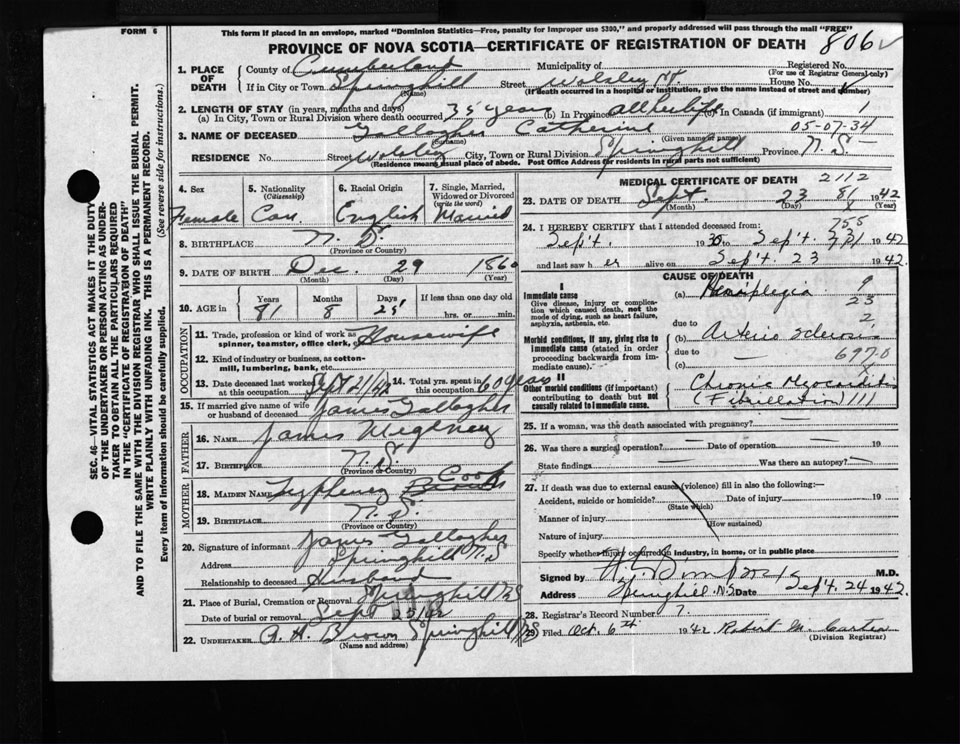 This form if placed in an envelope, marked "Dominion Statistics—Free, penalty for improper use $300," and properly addressed will pass through the mail "FREE"
FORM 6
PROVINCE OF NOVA SCOTIA—CERTIFICATE OF REGISTRATION OF DEATH 806
SEC. 46—VITAL STATISTICS ACT MAKES IT THE DUTY
OF THE UNDERTAKER OR PERSON ACTING AS UNDER-
TAKER TO OBTAIN ALL THE PARTICULARS REQUIRED
IN THE "CERTIFICATE OF REGISTRATION OF DEATH"
AND TO FILE THE SAME WITH THE DIVISION REGISTRAR WHO SHALL ISSUE THE BURIAL PERMIT.
WRITE PLAINLY WITH UNFADING INK. THIS IS A PERMANENT RECORD.
Every item of information should be carefully supplied. (See reverse side for instructions.)
1. PLACE OF DEATH
County of Cumberland Municipality of Registered No.
(For use of Registrar General only)
If in City or Town Springhill Street Wolsley St. House No.
(Name) (If death occurred in a hospital or institution, give the name instead of street and number)
2. LENGTH OF STAY (in years, months and days)
(a) In City, Town or Rural Division where death occurred 35 years (b) In Province all her life (c) In Canada (if immigrant) 1
3. NAME OF DECEASED Gallagher Catherine 05-07-34
(Surname) (Given name or names)
RESIDENCE No. Street Wolsley City, Town or Rural Division Springhill Province N.S.
(Residence means usual place of abode. Post Office Address for residents in rural parts not sufficient)
4. Sex
Female
5. Nationality
(Citizenship)
Can
6. Racial Origin
English
7. Single, Married,
Widowed or Divorced
(write the word)
Married
8. BIRTHPLACE N.S.
(Province or Country)
9. DATE OF BIRTH Dec. 29 1860
(Month) (Day) (Year)
10. AGE in
Years Months Days If less than one day old
81 8 25 hrs. or min.
OCCUPATION
11. Trade, profession or kind of work as
spinner, teamster, office clerk, Housewife
12. Kind of industry or business, as cotton-
mill, lumbering, bank, etc.
13. Date deceased last worked
at this occupation Sept 21/42
14. Total yrs. spent in
this occupation 60 years
15. If married give name of wife
or husband of deceased James Gallagher
FATHER
16. NAME James
17. BIRTHPLACE N.S.
(Province or Country)
MOTHER
18. MAIDEN NAME Cook
19. BIRTHPLACE N.S.
(Province or Country)
20. Signature of informant James Gallagher
Address Springhill N.S
Relationship to deceased Husband
21. Place of Burial, Cremation or Removal Springhill NS
Date of burial or removal Sept 25/42
22. UNDERTAKER A. H. Brown Springhill NS
(Name and address)
MEDICAL CERTIFICATE OF DEATH 2112
23. DATE OF DEATH Sept. 23 81 1942
(Month) (Day) (Year)
24. I HEREBY CERTIFY that I attended deceased from: 755
Sep't. 1935 to Sep't. 1942
and last saw her alive on Sept. 23 1942.
CAUSE OF DEATH
I
Immediate cause
Give disease, injury or complica-
tion which caused death, not the
mode of dying, such as heart failure,
asphyxia, asthenia, etc.
(a) Hemiplegia 9
23
2
due to
Morbid conditions, if any, giving rise to
immediate cause (stated in order
proceeding backwards from im-
mediate cause).
(b) Arterio Sclerosis
due to —
(c) 697.0
II
Other morbid conditions (if important)
contributing to death but not
causally related to immediate cause.
Chronic Myocarditis
(Fibrillation) 111
25. If a woman, was the death associated with pregnancy? —
26. Was there a surgical operation? — Date of operation — 19
State findings — Was there an autopsy? —
27. If death was due to external causes (violence) fill in also the following:—
Accident, suicide or homicide? Date of injury 19
(State which)
Manner of injury
(How sustained)
Nature of injury
Specify whether injury occurred in industry, in home, or in public place
Signed by M.D.
Address Springhill N.S Date Sep't. 24 1942
28. Registrar's Record Number 7.
29. Filed Oct. 6th 1942 Robert M. Carter
(Division Registrar)